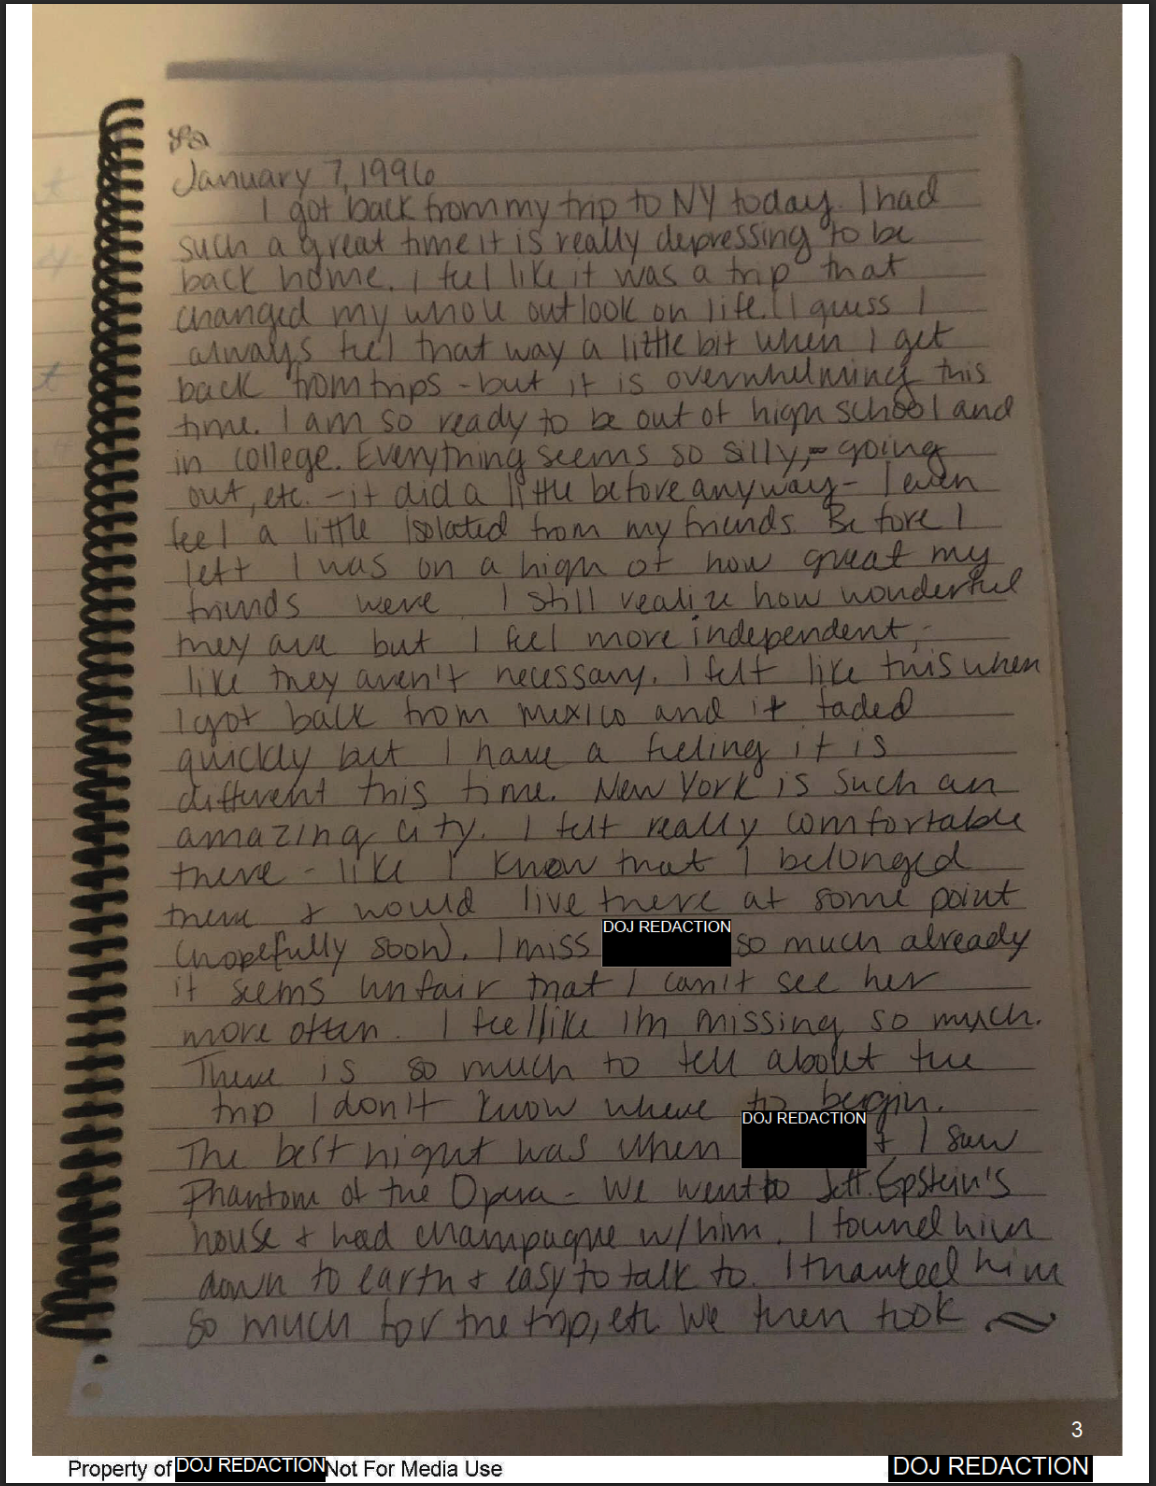 January 7, 1996
I got back from my trip to NY today. I had
such a great time it is really depressing to be
back home. I feel like it was a trip that
changed my whole outlook on life. I guess I
always feel that way a little bit when I get
back from trips - but it is overwhelming this
time. I am so ready to be out of high school and
in college. Everything seems so silly, - going
out, etc. - it did a little before anyway - I even
feel a little isolated from my friends. Before I
left I was on a high of how great my
friends were. I still realize how wonderful
they are but I feel more independent, -
like they aren't necessary. I felt like this when
I got back from Mexico and it faded
quickly but I have a feeling it is
different this time. New York is such an
amazing city. I felt really comfortable
there - like I know that I belonged
there & would live there at some point
(hopefully soon). I miss DOJ REDACTION so much already
it seems unfair that I can't see her
more often. I feel like I'm missing so much.
There is so much to tell about the
trip I don't know where to begin.
The best night was when DOJ REDACTION & I saw
Phantom of the Opera - We went to Jeff. Epstein's
house & had champagne w/ him. I found him
down to earth & easy to talk to. I thanked him
so much for the trip, etc. We then took
3
Property of DOJ REDACTION Not For Media Use
DOJ REDACTION